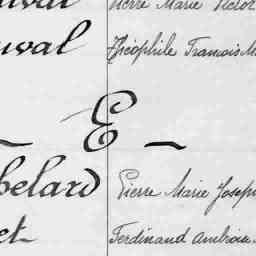 Pierre Marie Victor
uval Théophile Francois M
E
belard Pierre Marie Joseph
et Ferdinand Ambroise